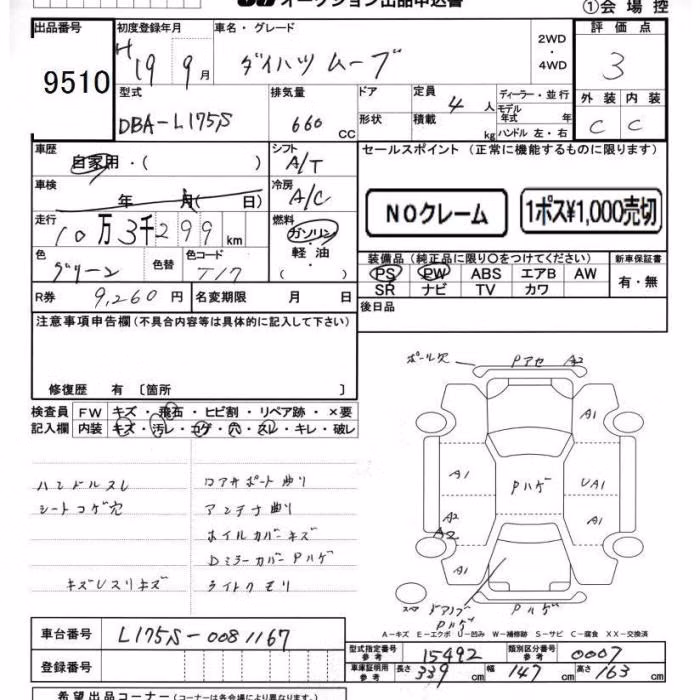 オークション出品申込書
①会場控
出品番号 9510
初度登録年月 H19 9月
車名・グレード ダイハツムーブ
2WD・4WD
評価点 3
外装 C 内装 C
型式 DBA-L175S
排気量 660 CC
ドア 形状
定員 4人
積載 kg
ディーラー・並行
モデル年式 年
ハンドル 左・右
車歴 自家用・( )
シフト A/T
セールスポイント (正常に機能するものに限ります)
車検 年 月( 日)
冷房 A/C
NOクレーム
1ポス¥1,000売切
走行 10万3千299km
燃料 ガソリン・軽油・( )
色 グリーン
色替
色コード T17
装備品(純正品に限り○をつけてください)
PS PW ABS エアB AW
SR ナビ TV カワ
新車保証書 有・無
R券 9,260円
名変期限 月 日
後日品
注意事項申告欄(不具合内容等は具体的に記入して下さい)
修復歴 有〔箇所 〕
検査員記入欄
FW キズ・飛石・ヒビ割・リペア跡・×要
内装 キズ・汚レ・コゲ・穴・スレ・キレ・破レ
ハンドルスレ
シートコゲ穴
キズUスリキズ
ロアサポート曲り
アンテナ曲り
ホイルカバーキズ
DミラーカバーPハゲ
ライトクモリ
ポール穴
Pアセ A2
A1
A1
Pハゲ
UA1
A2
A2
A1
A1
スペア
ドアノブ Pハゲ
Pハゲ
A−キズ E−エクボ U−凹み W−補修跡 S−サビ C−腐食 XX−交換済
車台番号 L175S-0081167
登録番号
型式指定番号 参考 15492
類別区分番号 参考 0007
車庫証明用 参考 長さ 339cm 幅 147cm 高さ 163cm
希望出品コーナー(コーナーは各会場により異なります。)